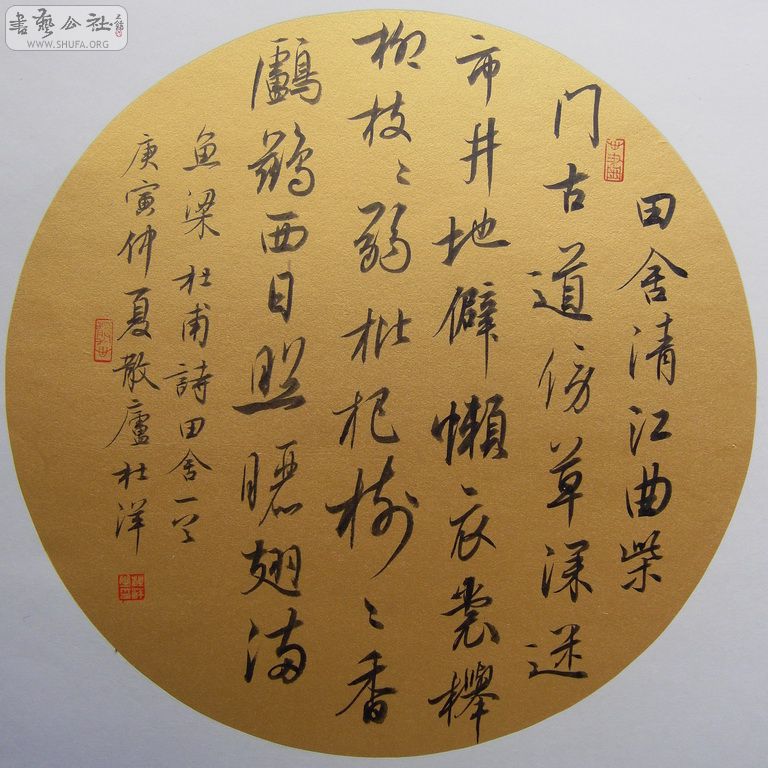 書藝公社
WWW.SHUFA.ORG
田舍清江曲柴
门古道傍草深迷
市井地僻懶衣裳櫸
柳枝々弱枇杷树々香
鸕鶿西日照曬翅满
鱼梁 杜甫詩田舍一首
庚寅仲夏散廬杜洋